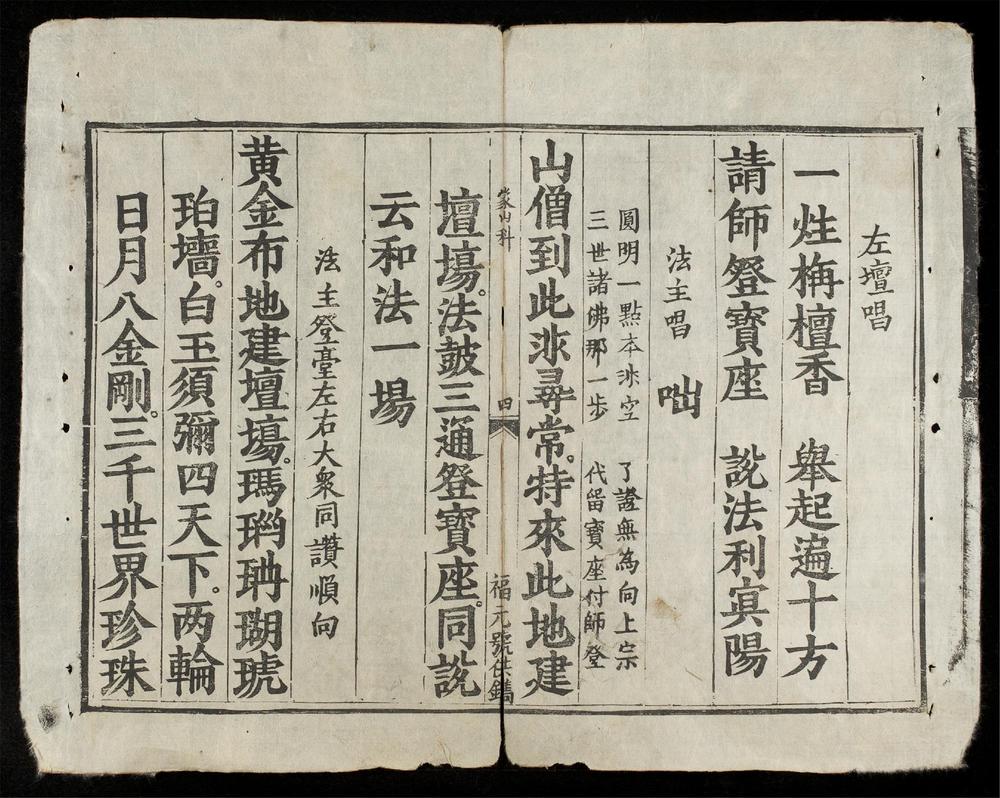 左壇唱
一炷栴檀香　舉起遍十方
請師登寶座　說法利冥陽
法主唱　咄
圓明一點本來空　了證無為向上宗
三世諸佛那一步　代留寶座付師登
山僧到此非尋常。特來此地建
蒙山科　四　福元號供鐫
壇場。法皷三通登寶座。同說
云和法一場
法主登臺左右大衆同讚順向
黄金布地建壇場。瑪瑙珊瑚琥
珀墻。白玉須彌四天下。两輪
日月八金剛。三千世界珍珠